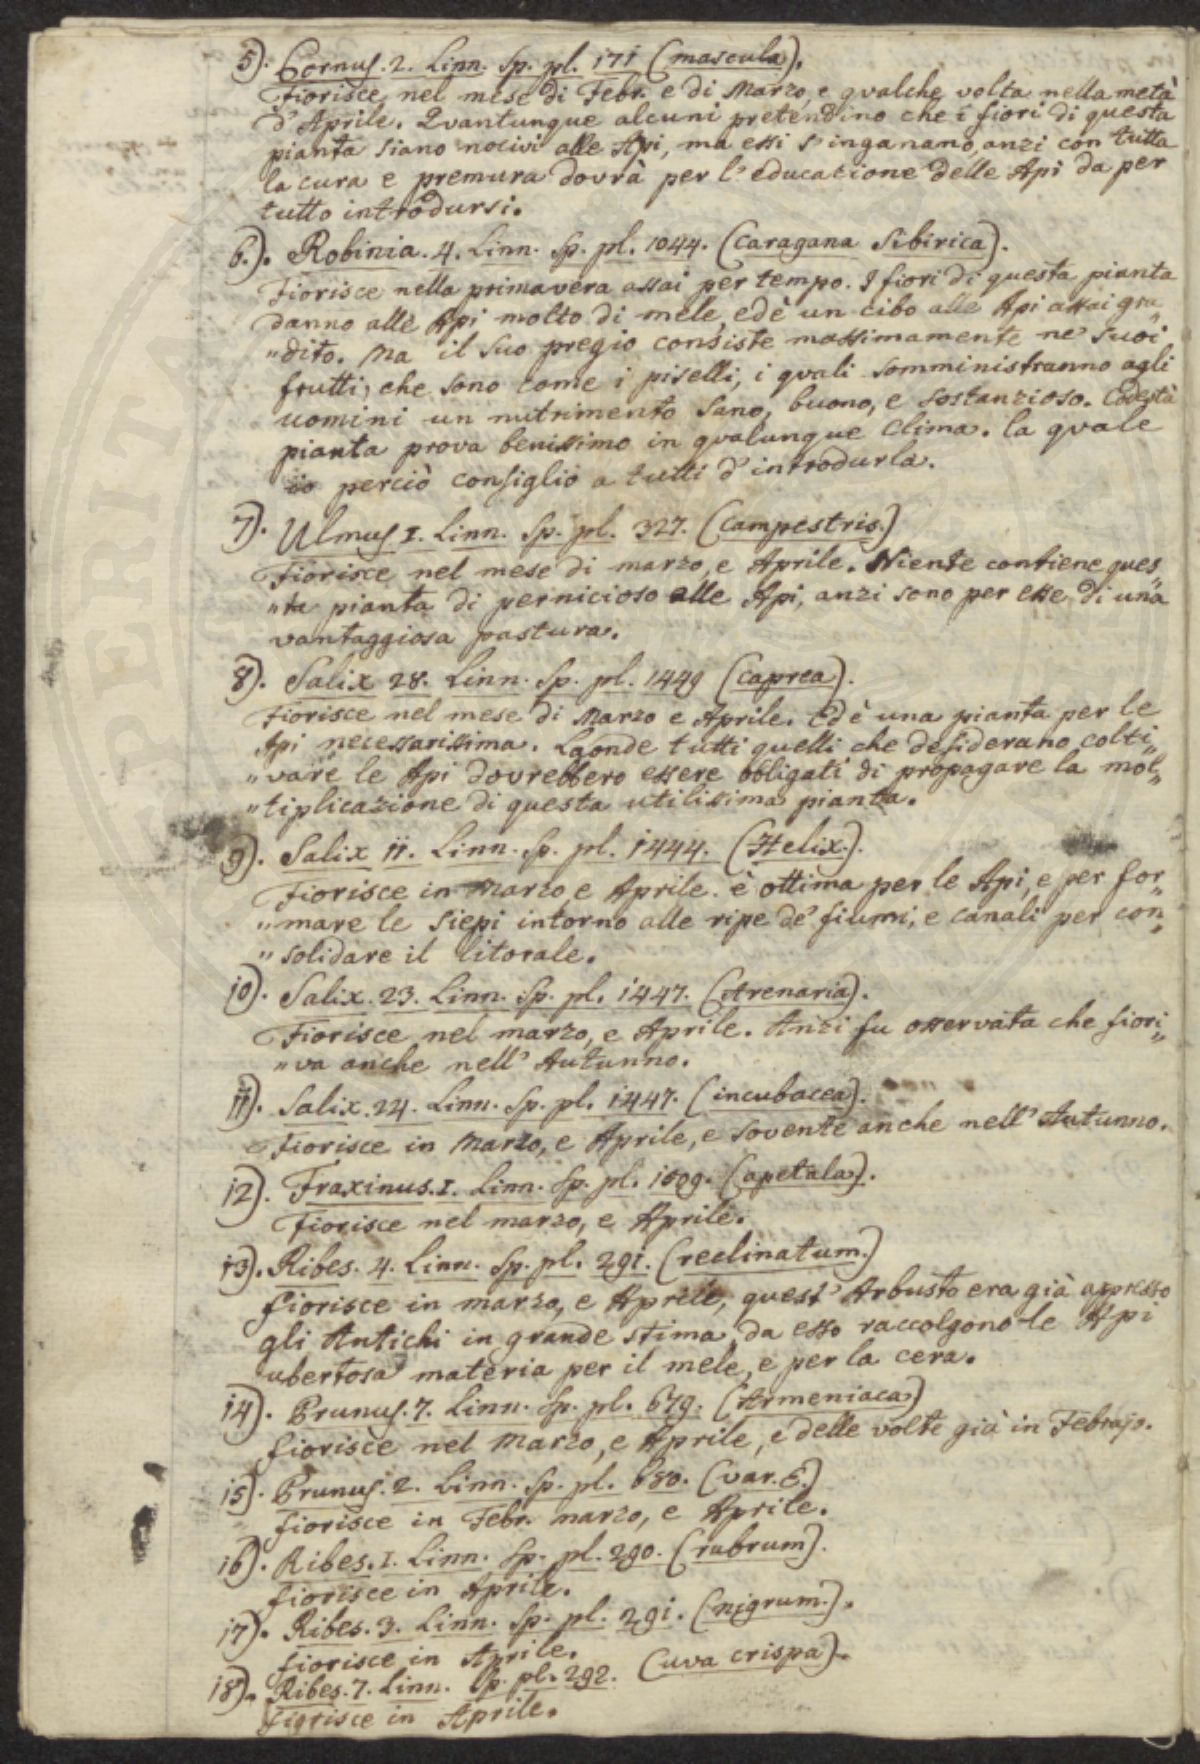 5). Cornus. 2. Linn. Sp. pl. 171 (mascula).
Fiorisce nel mese di Febr. e di Marzo, e qvalche volta nella metà
d'Aprile. Qvantunque alcuni pretendino che i fiori di questa
pianta siano nocivi alle Api, ma essi s'inganano, anzi con tutta
la cura e premura dovrà per l'educazione delle Api da per
tutto introdursi.
6.). Robinia. 4. Linn. Sp. pl. 1044. (Caragana Sibirica).
Fiorisce nella primavera assai per tempo. I fiori di questa pianta
danno alle Api molto di mele, ed è un cibo alle Api assai gra„
„dito. Ma il suo pregio consiste massimamente ne' suoi
frutti, che sono come i piselli, i qvali somministranno agli
uomini un nutrimento sano, buono, e sostanzioso. Codestà
pianta prova benissimo in qvalunque Clima. la qvale
io perciò consiglio a tutti d'introdurla.
7). Ulmus 1. Linn. Sp. pl. 327. (Campestris.)
Fiorisce nel mese di marzo, e Aprile. Niente contiene ques„
„ta pianta di pernicioso alle Api, anzi sono per esse di una
vantaggiosa pastura.
8). Salix 28. Linn. Sp. pl. 1449 (Caprea).
Fiorisce nel mese di Marzo e Aprile. Ed è una pianta per le
Api necessarissima. Laonde tutti quelli che desiderano colti„
„vare le Api dovrebbero essere obbligati di propagare la mol„
„tiplicazione di questa utilissima pianta.
9). Salix 11. Linn. Sp. pl. 1444. (Helix.).
Fiorisce in Marzo e Aprile. è ottima per le Api, e per for„
„mare le siepi intorno alle ripe de' fiumi, e canali per con„
„solidare il litorale.
10). Salix. 23. Linn. Sp. pl. 1447. (Arenaria).
Fiorisce nel marzo, e Aprile. Anzi fu osservata che fiori„
„va anche nell'Autunno.
11). Salix. 24. Linn. Sp. pl. 1447. (incubacea).
Fiorisce in Marzo, e Aprile, e sovente anche nell'Autunno.
12). Fraxinus. 1. Linn. Sp. pl. 1509. (apetala).
Fiorisce nel marzo, e Aprile.
13). Ribes. 4. Linn. Sp. pl. 291. (reclinatum.)
Fiorisce in marzo, e Aprile, quest'Arbusto era già appresso
gli Antichi in grande stima, da esso raccolgono le Api
ubertosa materia per il mele, e per la cera.
14). Prunus. 7. Linn. Sp. pl. 679. (Armeniaca)
Fiorisce nel Marzo, e Aprile, e delle volte già in Febrajo.
15). Prunus. 2. Linn. Sp. pl. 680. (var. ε.)
Fiorisce in Febr. marzo, e Aprile.
16). Ribes. 1. Linn. Sp. pl. 290. (rubrum).
Fiorisce in Aprile.
17). Ribes. 3. Linn. Sp. pl. 291. (nigrum.).
Fiorisce in Aprile.
18). Ribes. 7. Linn. Sp. pl. 292. (uva crispa).
Fiorisce in Aprile.